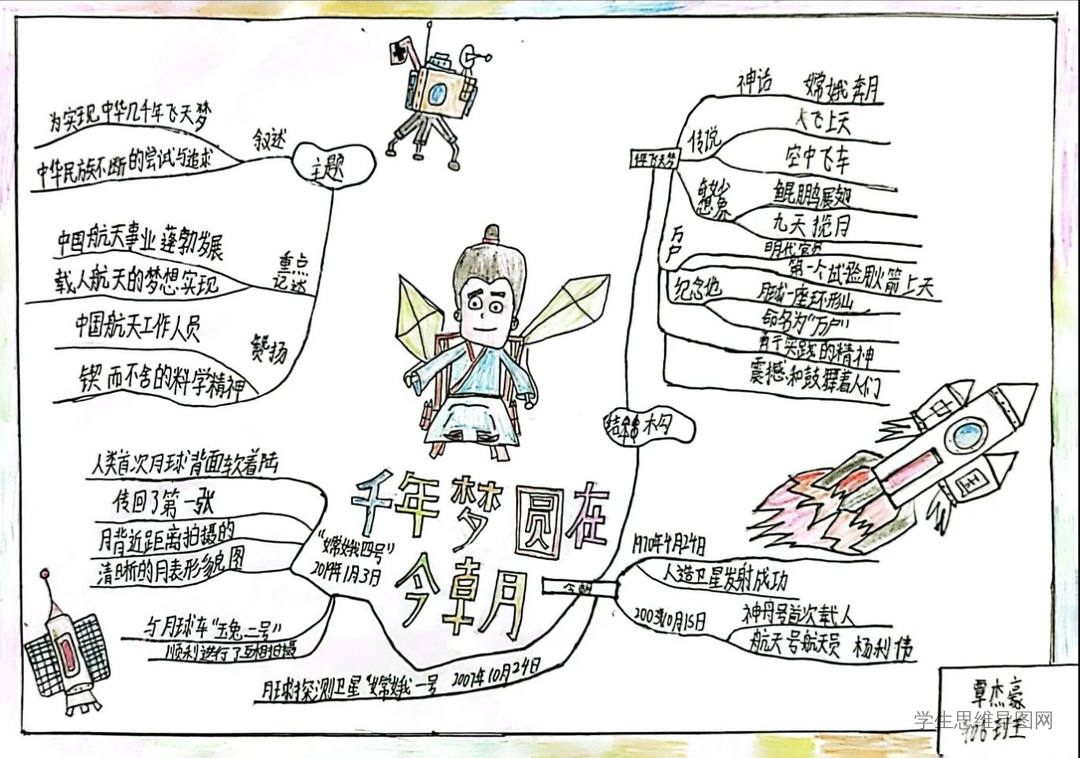 千年梦圆在
今朝
主题
叙述
为实现中华几千年飞天梦
中华民族不断的尝试与追求
重点
记述
中国航天事业蓬勃发展
载人航天的梦想实现
赞扬
中国航天工作人员
锲而不舍的科学精神
结构
千年飞天梦
神话 嫦娥奔月
传说
人飞上天
空中飞车
想象
鲲鹏展翅
九天揽月
万户
明代官员
第一个试验用火箭上天
纪念他
月球一座环形山
命名为"万户"
勇于实践的精神
震撼和鼓舞着人们
今朝
1970年4月24日
人造卫星发射成功
2003年10月15日
神舟号首次载人
航天号航天员 杨利伟
月球探测卫星"嫦娥一号 2007年10月24日
"嫦娥四号"
2019年1月3日
人类首次月球背面软着陆
传回了第一张
月背近距离拍摄的
清晰的月表形貌图
与月球车"玉兔二号"
顺利进行了互相拍摄
中
国
覃杰豪
班
学生思维导图网